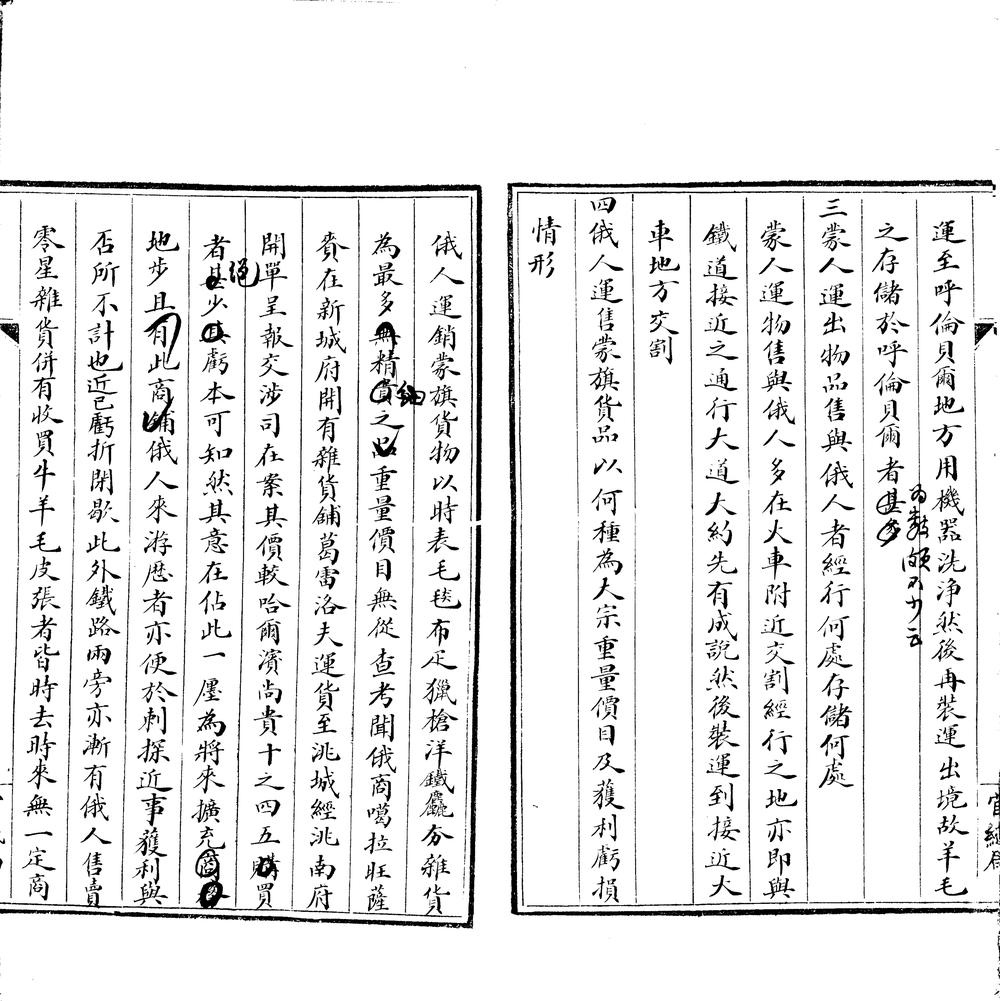 運至呼倫貝爾地方用機器洗淨然後再裝運出境故羊毛
之存儲於呼倫貝爾者甚多
為數頗不少云
三蒙人運出物品售與俄人者經行何處存儲何處
蒙人運物售與俄人多在火車附近交割經行之地亦即與
鐵道接近之通行大道大約先有成說然後裝運到接近大
車地方交割
四俄人運售蒙旗貨品以何種為大宗重量價目及獲利虧損
情形
俄人運銷蒙旗貨物以時表毛毯布疋獵槍洋鐵麤夯雜貨
為最多無精貴之品重量價目無從查考聞俄商噶拉旺薩
細
賚在新城府開有雜貨舖葛雷洛夫運貨至洮城經洮南府
開單呈報交涉司在案其價較哈爾濱尚貴十之四五購買
者甚少其虧本可知然其意在佔此一廛為將來擴充商
絕
地步且有此商舖俄人來游歷者亦便於刺探近事獲利與
否所不計也近已虧折閉歇此外鐵路兩旁亦漸有俄人售賣
零星雜貨併有收買牛羊毛皮張者皆時去時來無一定商